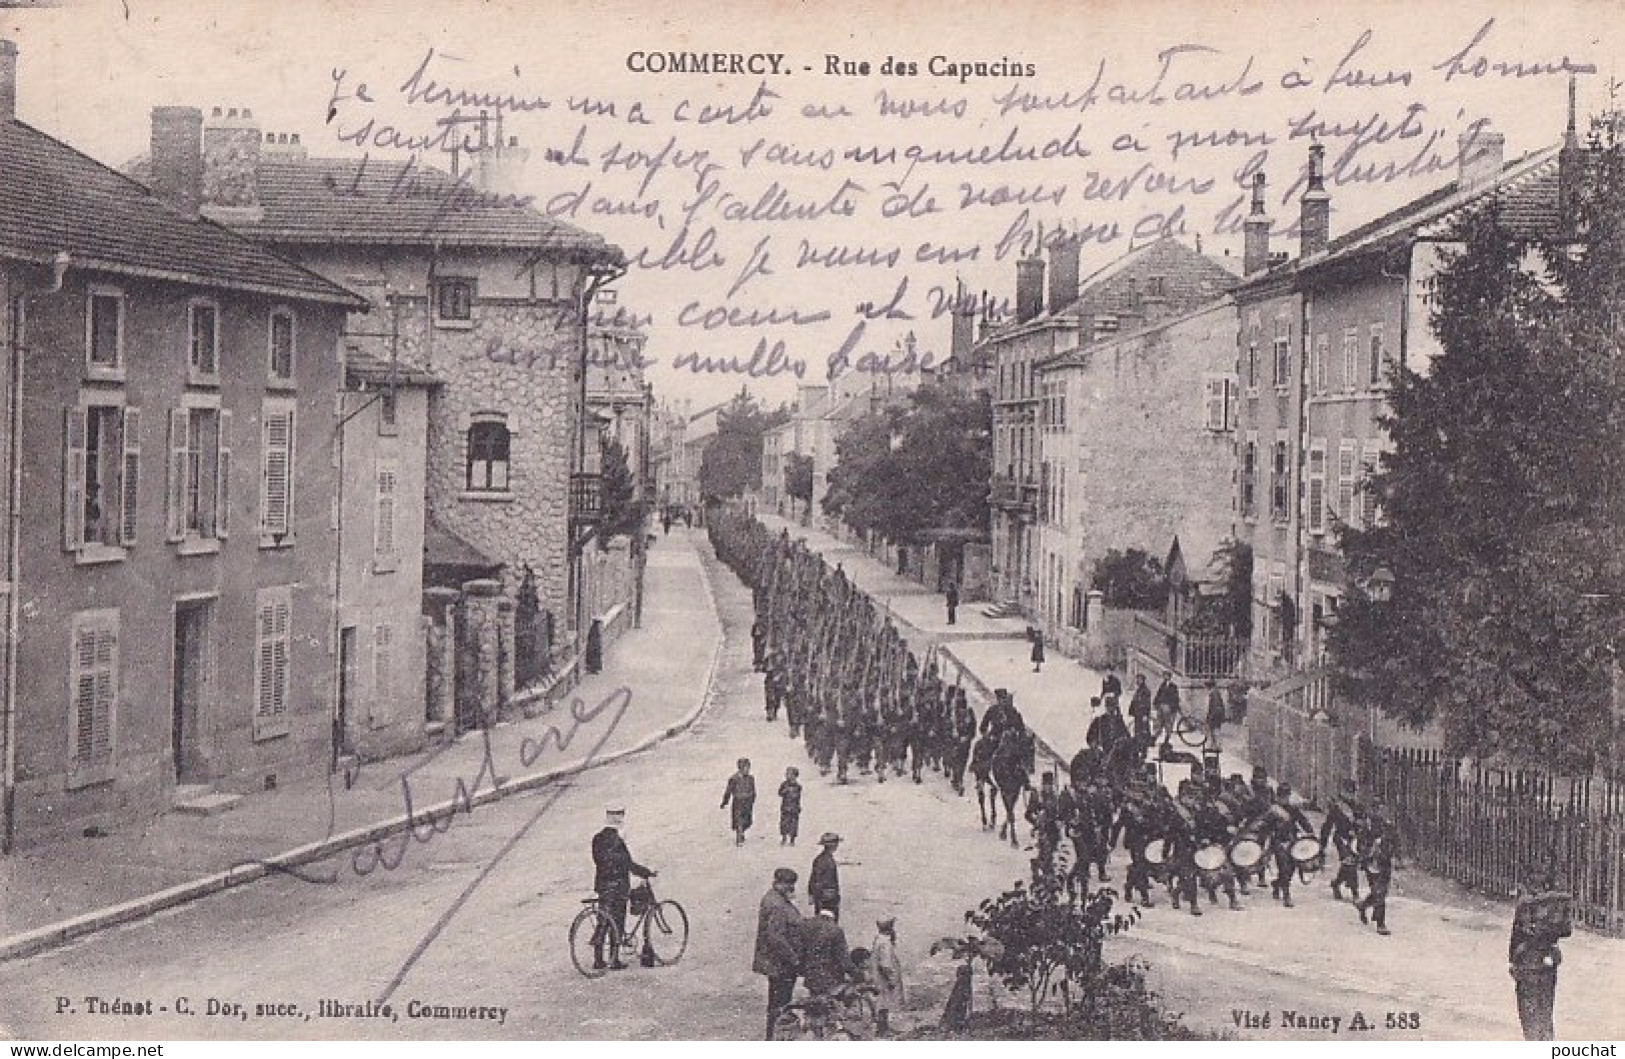 COMMERCY. - Rue des Capucins
Je termine ma carte en vous souhaitant à tous bonne
santé et soyez sans inquietude à mon sujet,
et toujours dans l'attente de vous revoir le plustot
possible je vous embrasse de tout
mon cœur et vous
envoie milles baisers
P. Thénot - C. Dor, succ., libraire, Commercy
Visé Nancy A. 583
pouchat